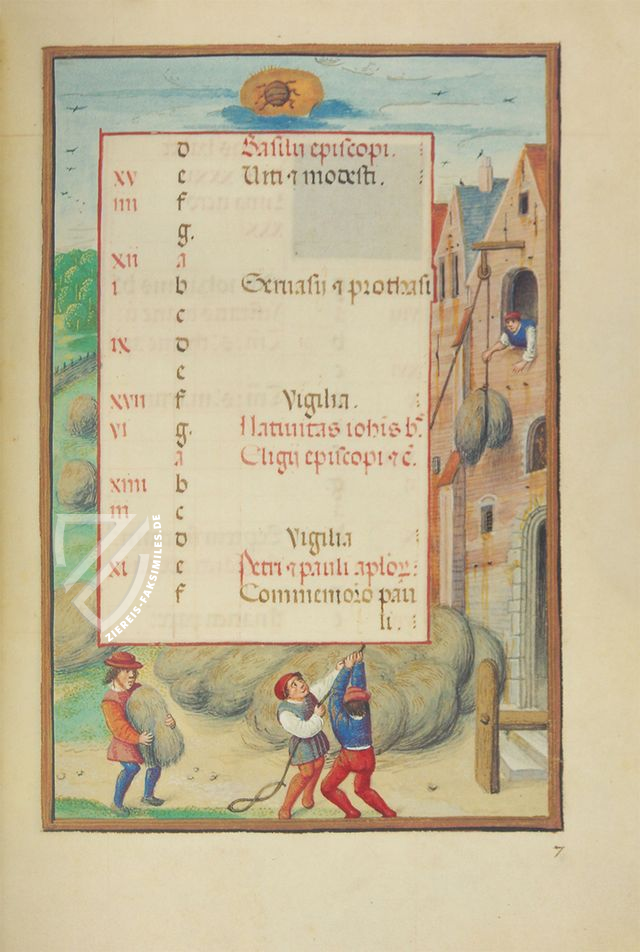 d Basilij episcopi.
xv e Uiti ⁊ modesti.
iiii f
g.
xii a
i b Geruasij ⁊ prothasi
c
ix d
e
xvii f Vigilia.
vi g. Natiuitas iohis b.
a Eligij episcopi ⁊ c̄.
xiiii b
iii c
d Vigilia
xi e Petri ⁊ pauli aplor:
f Commemoro pau
li.
ZIEREIS-FAKSIMILES.DE
7